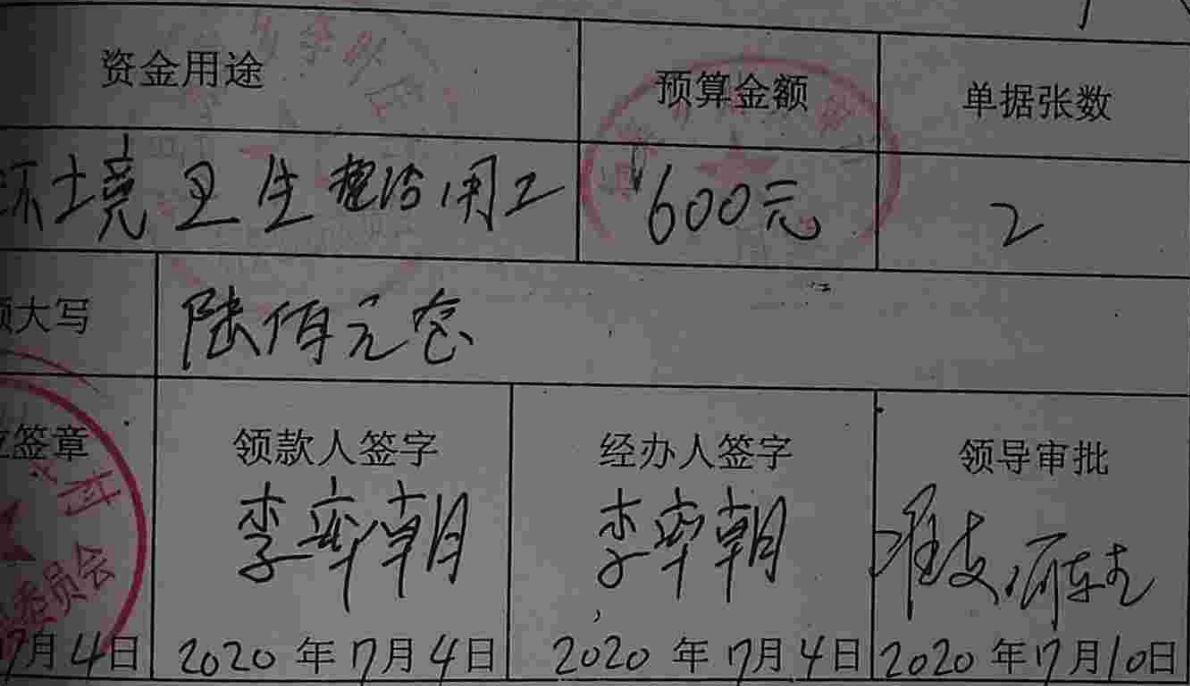 资金用途 预算金额 单据张数
环境卫生整治用工 600元 2
额大写 陆佰元整
签章 领款人签字 经办人签字 领导审批
村 李奕朝 李奕朝 准支
委员会
7月4日 2020年7月4日 2020年7月4日 2020年7月10日